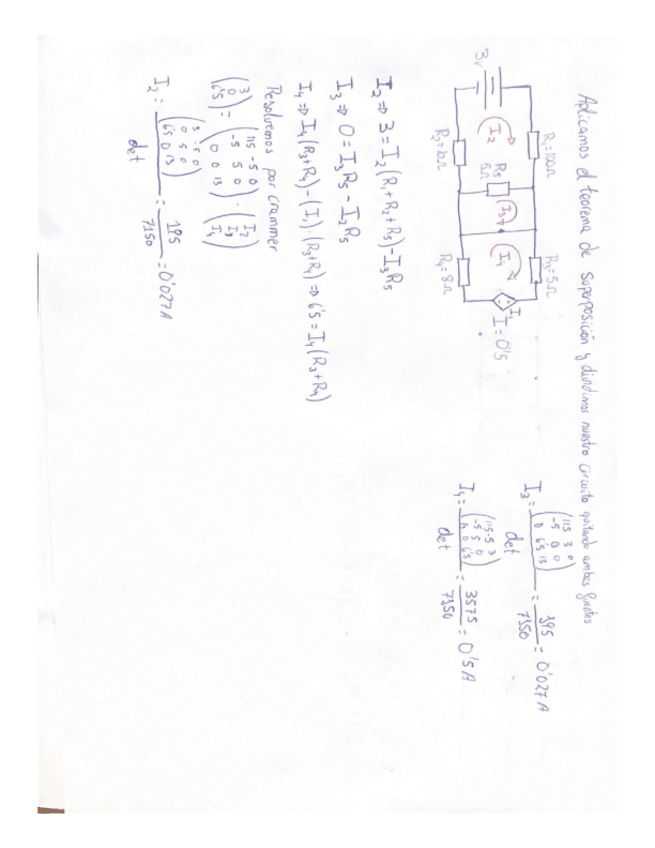 Aplicamos el teorema de superposición y dividimos nuestro circuito quitando ambas fuentes
R₁=100Ω
R₃=5Ω
3v
I₂
R₅
5Ω
I₃
I₄
I₁
I=0'5
R₂=10Ω
R₄=8Ω
I₂ => 3 = I₂(R₁+R₂+R₅)-I₃R₅
I₃ => 0 = I₃R₅ - I₂R₅
I₄ => I₄(R₃+R₄)-(I)·(R₃+R₄) => 6'5 = I₄(R₃+R₄)
Resolvemos por crammer
(3 0 6'5) = (115 -5 0 / -5 5 0 / 0 0 13) · (I₂ I₃ I₄)
I₂ = (3 -5 0 / 0 5 0 / 6'5 0 13) / det = 195 / 7150 = 0'027A
I₃ = (115 3 0 / -5 0 0 / 0 6'5 13) / det = 195 / 7150 = 0'027A
I₄ = (115 -5 3 / -5 5 0 / 0 0 6'5) / det = 3575 / 7150 = 0'5A